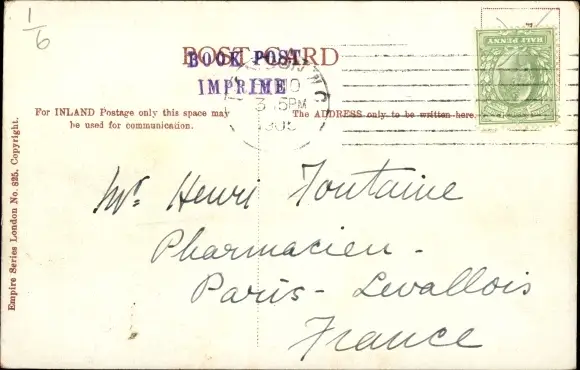 1/6
POST CARD
BOOK POST.
IMPRIMÉ
3.15PM
1905
HALF PENNY
For INLAND Postage only this space may
be used for communication.
The ADDRESS only to be written here.
Empire Series London No. 825. Copyright.
Mr. Henri Fontaine
Pharmacien -
Paris - Levallois
France